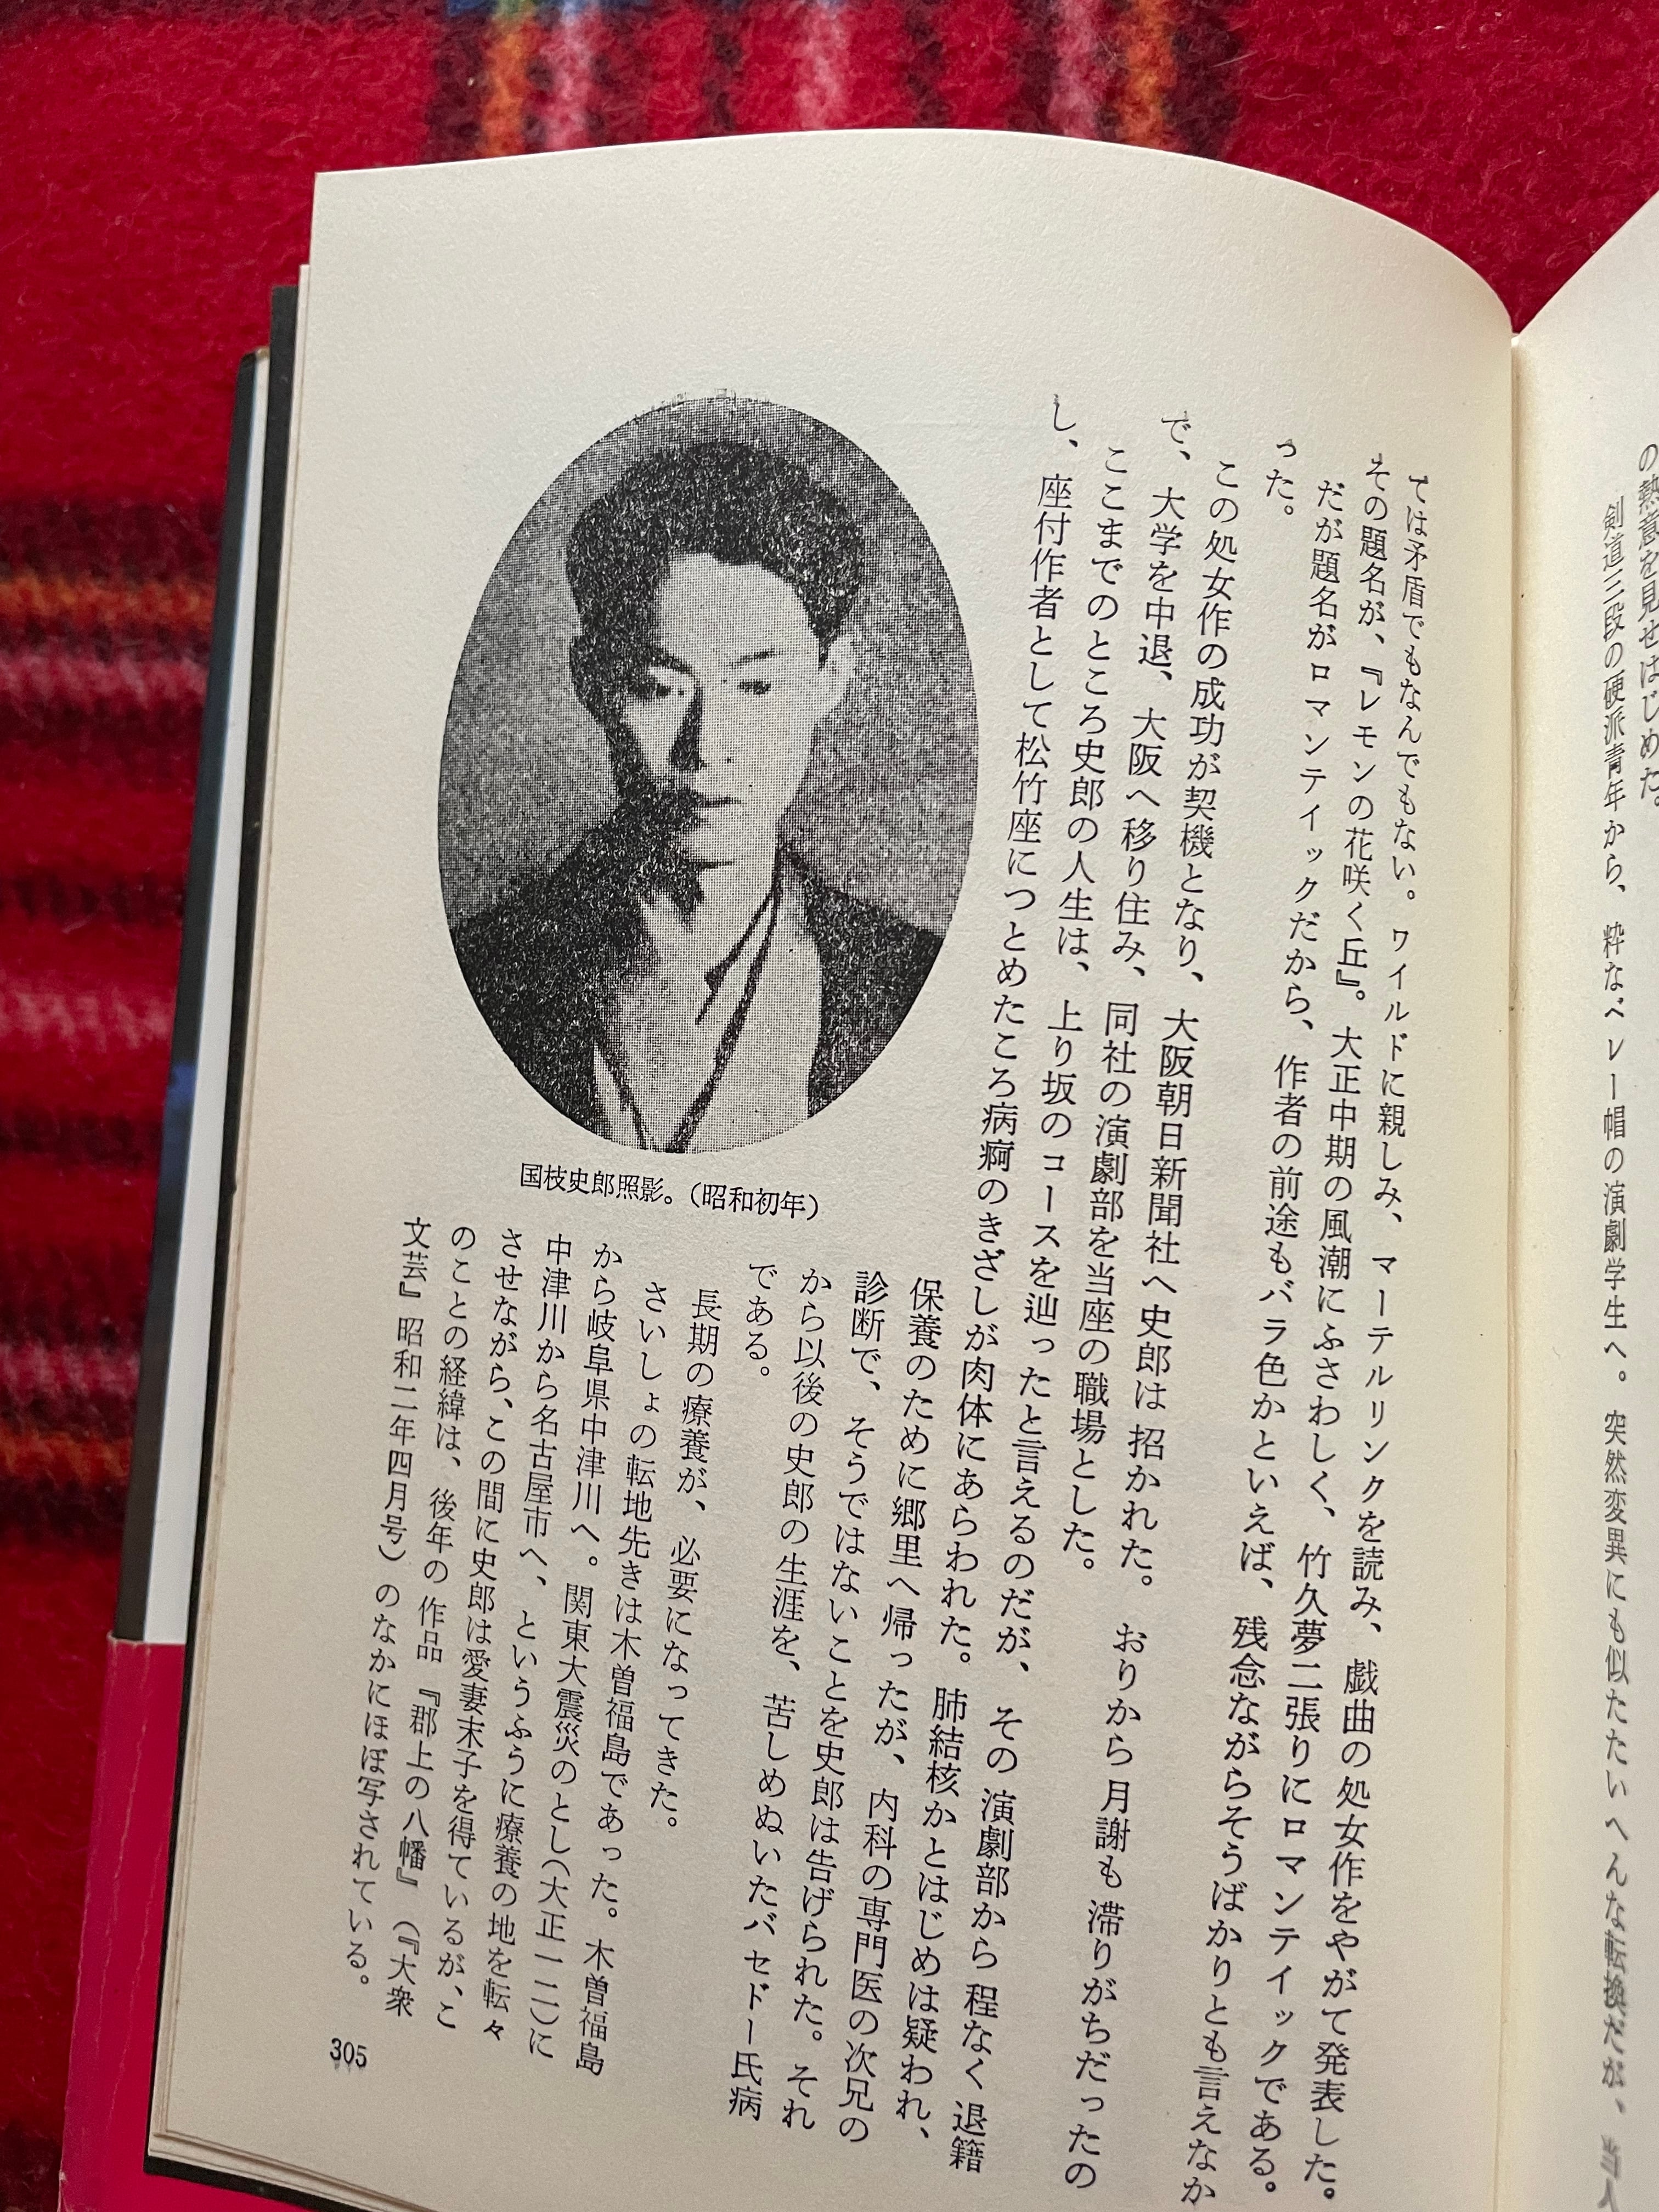 の熱意を見せはじめた。
剣道三段の硬派青年から、粋なベレー帽の演劇学生へ。突然変異にも似たたいへんな転換だが、当人
ては矛盾でもなんでもない。ワイルドに親しみ、マーテルリンクを読み、戯曲の処女作をやがて発表した。
その題名が、『レモンの花咲く丘』。大正中期の風潮にふさわしく、竹久夢二張りにロマンテイックである。
だが題名がロマンテイックだから、作者の前途もバラ色かといえば、残念ながらそうばかりとも言えなか
った。
この処女作の成功が契機となり、大阪朝日新聞社へ史郎は招かれた。おりから月謝も滞りがちだったの
で、大学を中退、大阪へ移り住み、同社の演劇部を当座の職場とした。
ここまでのところ史郎の人生は、上り坂のコースを辿ったと言えるのだが、その演劇部から程なく退籍
し、座付作者として松竹座につとめたころ病痾のきざしが肉体にあらわれた。肺結核かとはじめは疑われ、
保養のために郷里へ帰ったが、内科の専門医の次兄の
診断で、そうではないことを史郎は告げられた。それ
から以後の史郎の生涯を、苦しめぬいたバセドー氏病
である。
長期の療養が、必要になってきた。
さいしょの転地先きは木曽福島であった。木曽福島
から岐阜県中津川へ。関東大震災のとし(大正一二)に
中津川から名古屋市へ、というふうに療養の地を転々
させながら、この間に史郎は愛妻末子を得ているが、こ
のことの経緯は、後年の作品『郡上の八幡』(『大衆
文芸』昭和二年四月号)のなかにほぼ写されている。
国枝史郎照影。(昭和初年)
305